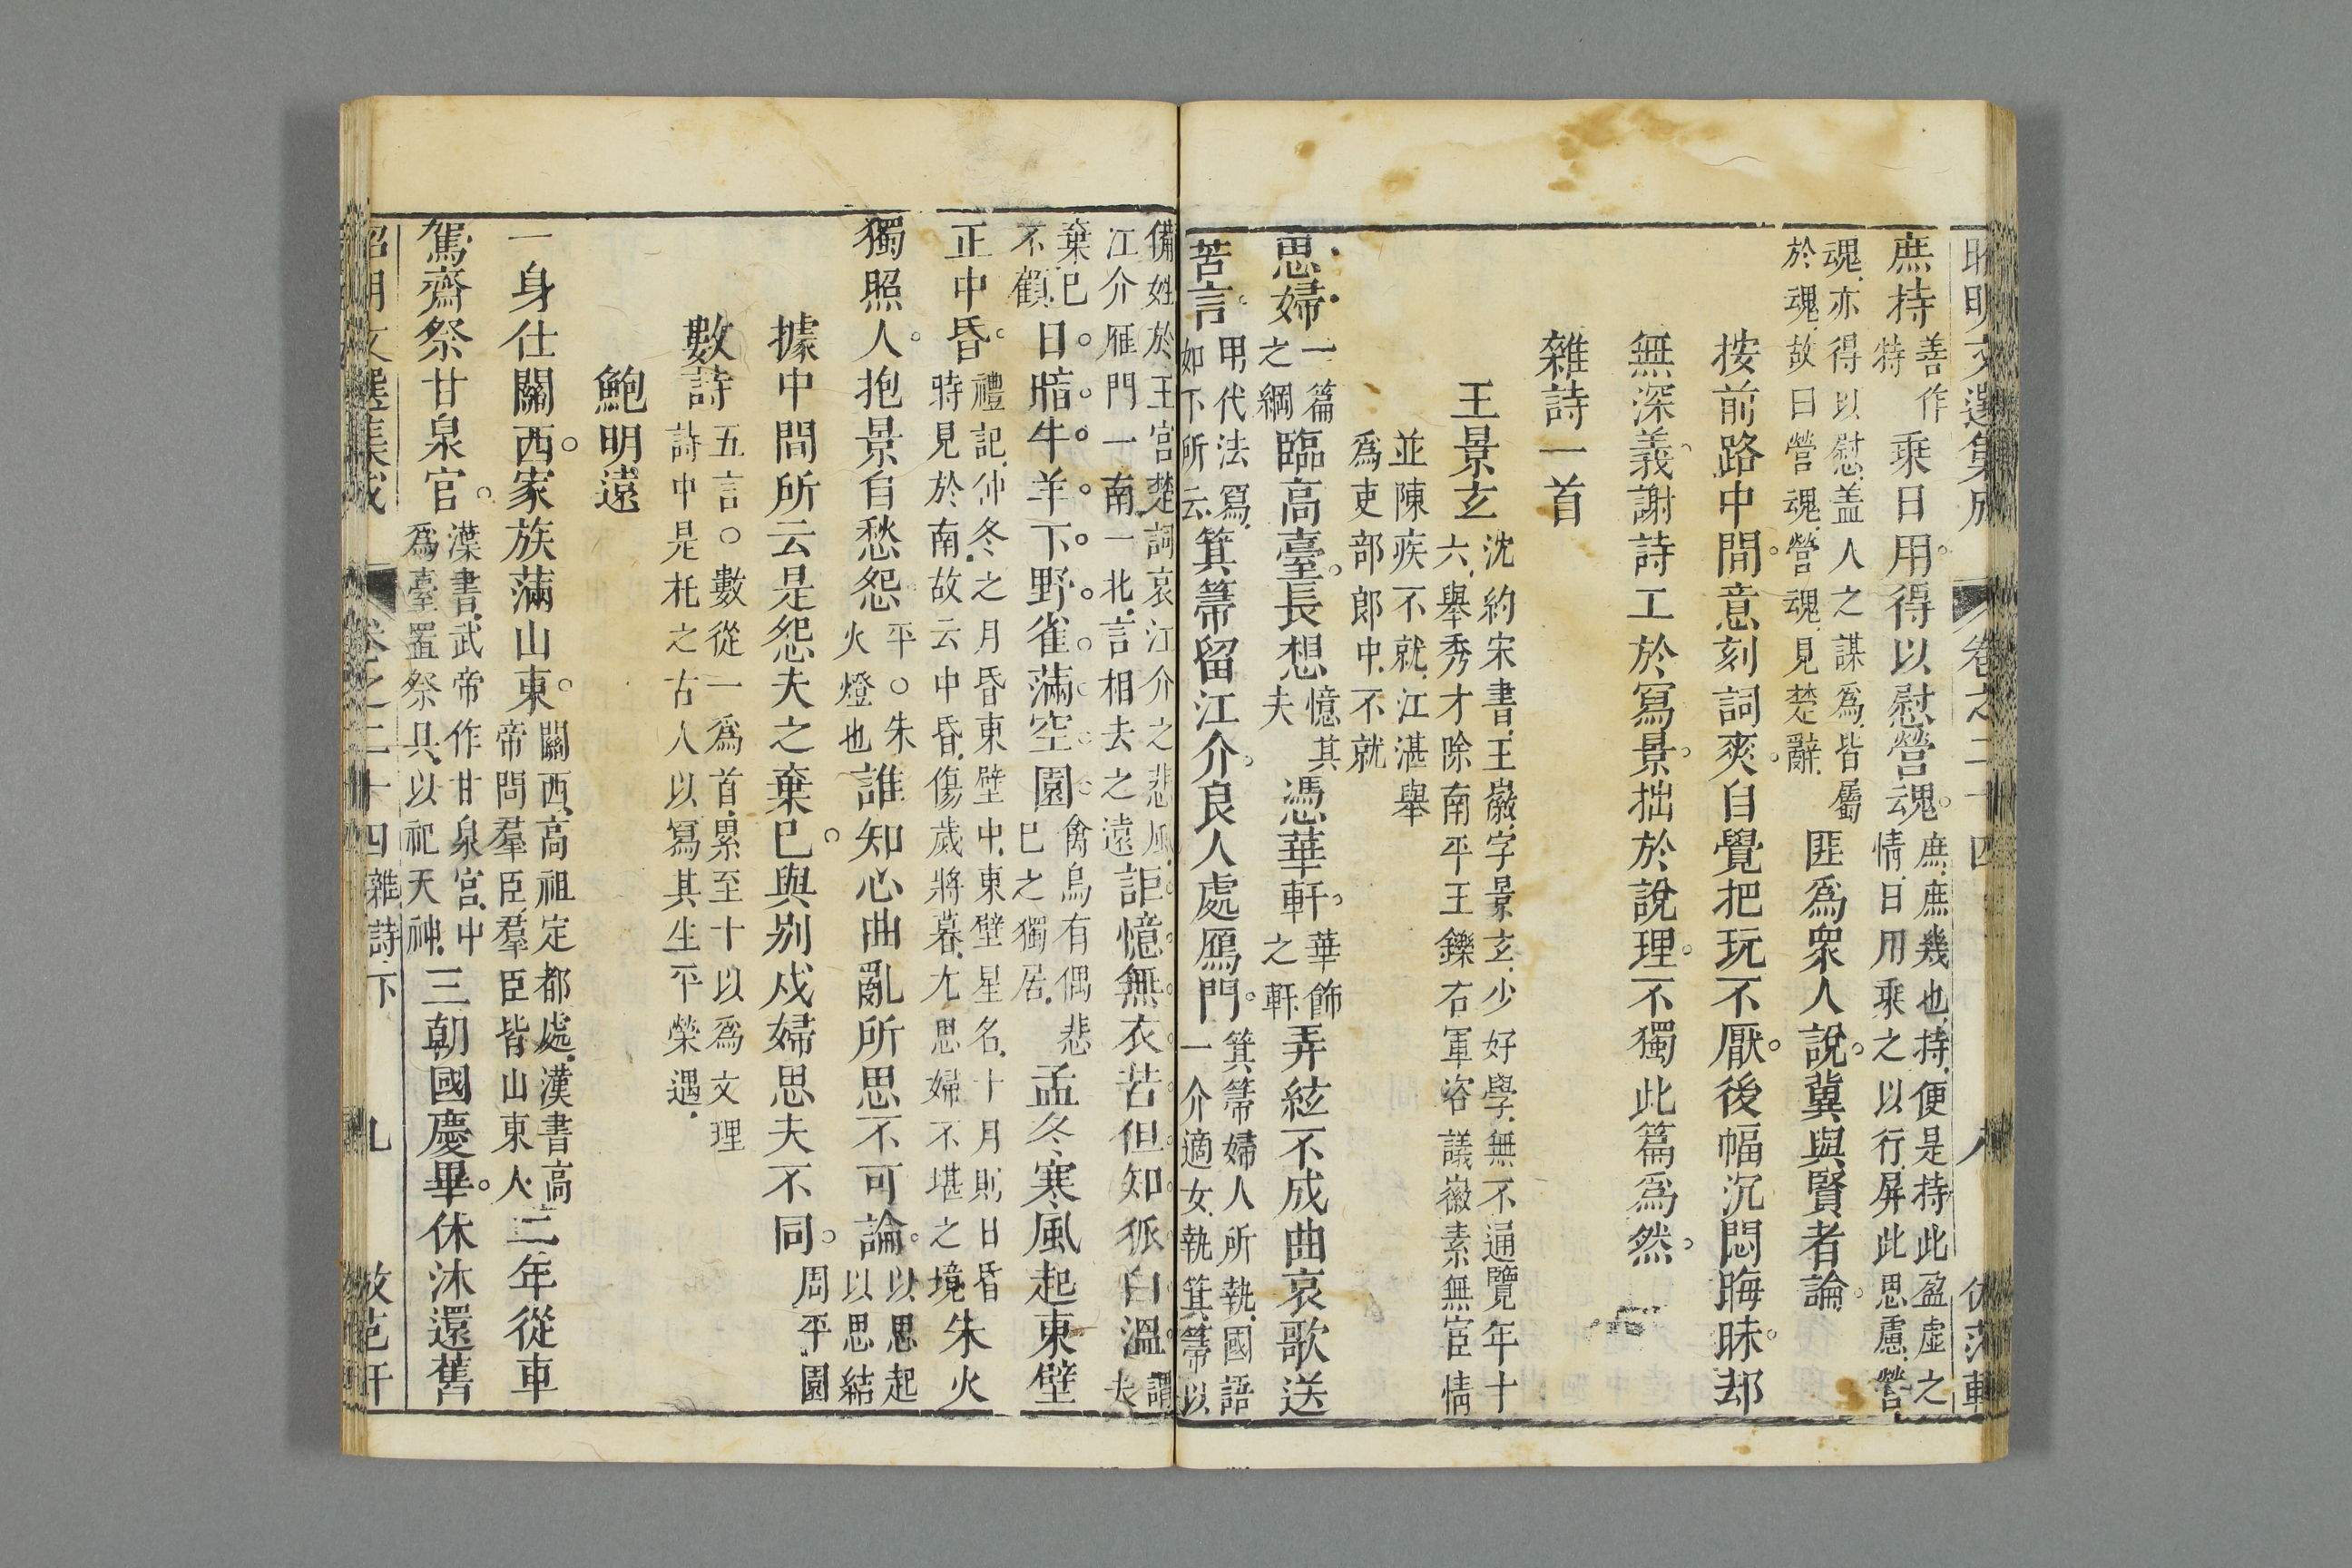 昭明文選集成 卷之二十四 八 倣范軒
庶持善作特乘日用得以慰營魂庶庶幾也持便是持此盈虛之情日用乘之以行屏此思慮營
魂亦得以慰盖人之謀爲皆屬於魂故曰營魂營魂見楚辭匪爲衆人說冀與賢者論
按前路中間意刻詞爽自覺把玩不厭後幅沉悶晦昧却
無深義謝詩工於寫景拙於說理不獨此篇爲然
雜詩一首
王景玄沈約宋書王徽字景玄少好學無不通覽年十六舉秀才除南平王鑠右軍咨議徽素無宦情
並陳疾不就江湛舉爲吏部郎中不就
思婦一篇之綱臨高臺長想憶其夫憑華軒華飾之軒弄絃不成曲哀歌送
苦言甲代法寫如下所云箕箒留江介良人處鴈門箕箒婦人所執國語一介適女執箕箒以
備姓於王宮楚詞哀江介之悲風江介雁門一南一北言相去之遠詎憶無衣苦但知狐白溫謂夫
棄已不顧日暗牛羊下野雀滿空園禽鳥有偶悲已之獨居孟冬寒風起東壁
正中昏禮記仲冬之月昏東壁中東壁星名十月則日昏時見於南故云中昏傷歲將暮尤思婦不堪之境朱火
獨照人抱景自愁怨平○朱火燈也誰知心曲亂所思不可論以思起以思結
據中間所云是怨夫之棄已與別戍婦思夫不同周平園
數詩五言○數從一爲首累至十以爲文理詩中是托之古人以寫其生平榮遇
鮑明遠
一身仕關西家族滿山東關西高祖定都處漢書高帝問羣臣羣臣皆山東人二年從車
駕齋祭甘泉宫漢書武帝作甘泉宫中爲臺置祭具以祀天神三朝國慶畢休沐還舊
昭明文選集成 卷之二十四雜詩下 九 倣范軒